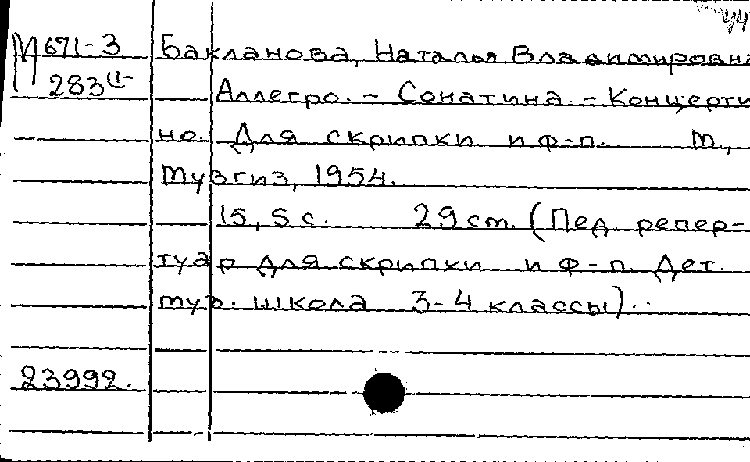 44
М 671-3 Бакланова, Наталья Владимировна
283(1- Аллегро. - Сонатина. - Концерти-
но. Для скрипки и ф-п. М.,
Музгиз, 1954.
15, 5 с. 29 cm. (Пед. репер-
туар для скрипки и ф-п. Дет.
муз. школа 3-4 классы)..
23992.